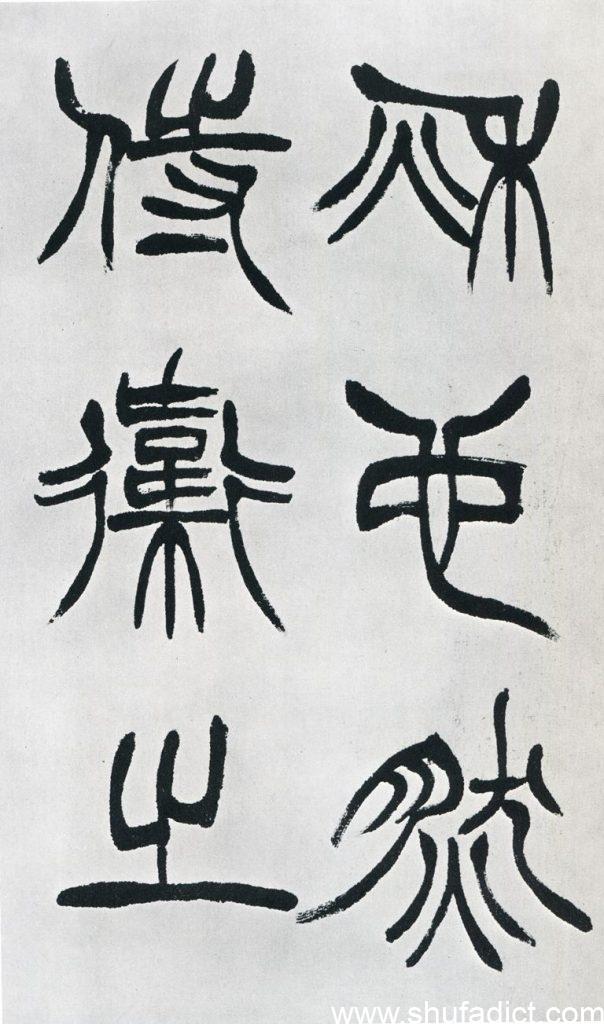 秋也然
侍衛之
www.shufadict.com